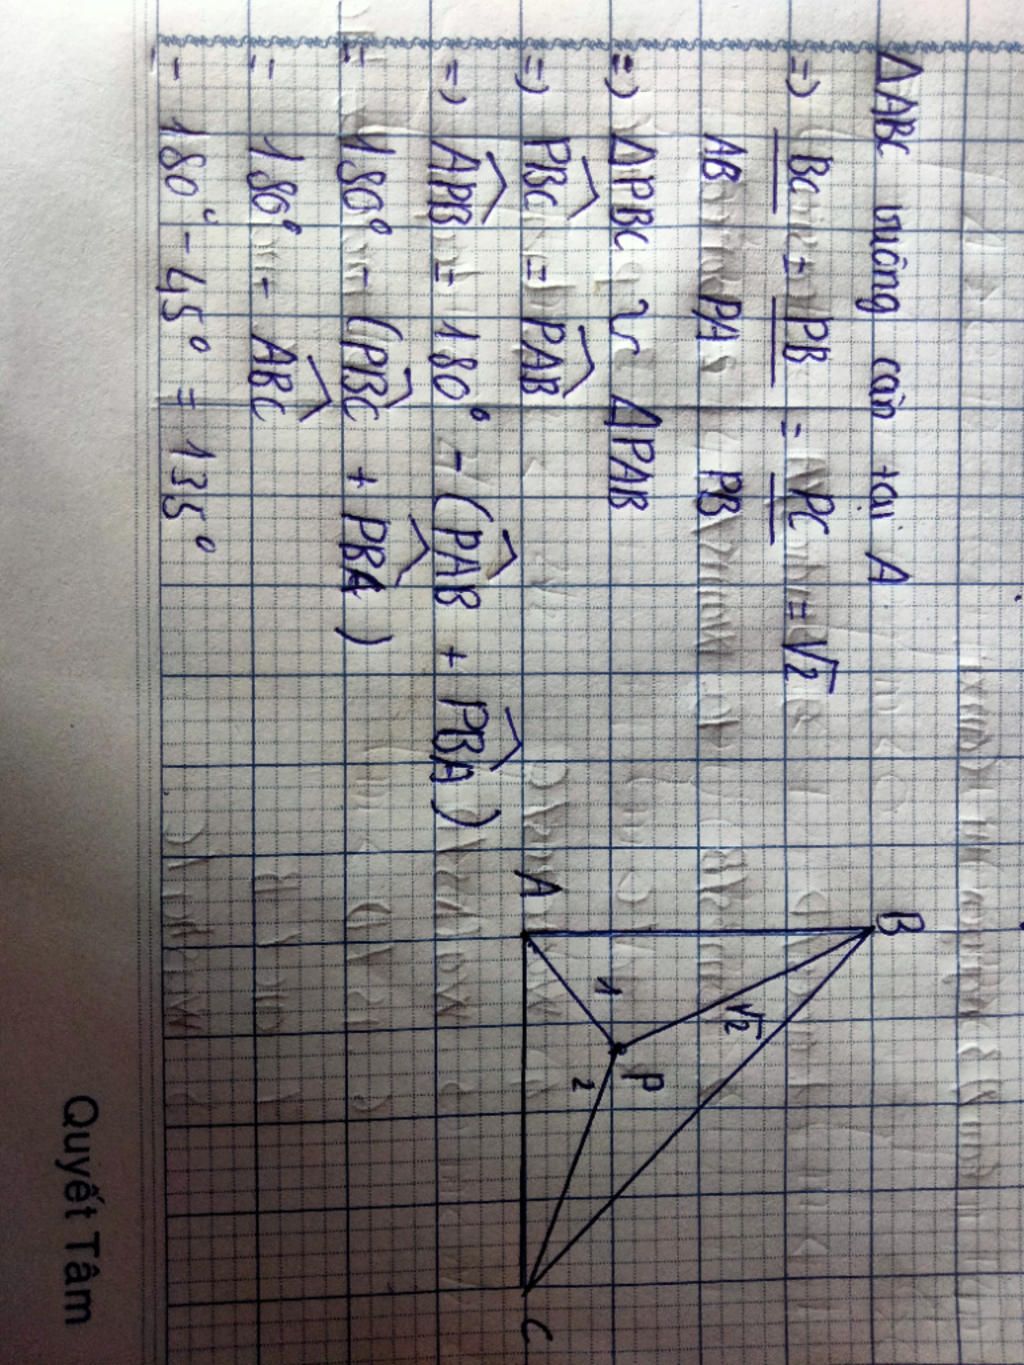 ΔABC vuông cân tại A
=> BC/AB = PB/PA = PC/PB = √2
=> ΔPBC ~ ΔPAB
=> PBC = PAB
=> APB = 180° - (PAB + PBA)
= 180° - (PBC + PBA)
= 180° - ABC
= 180° - 45° = 135°
B
√2
P
1
2
A
C
Quyết Tâm